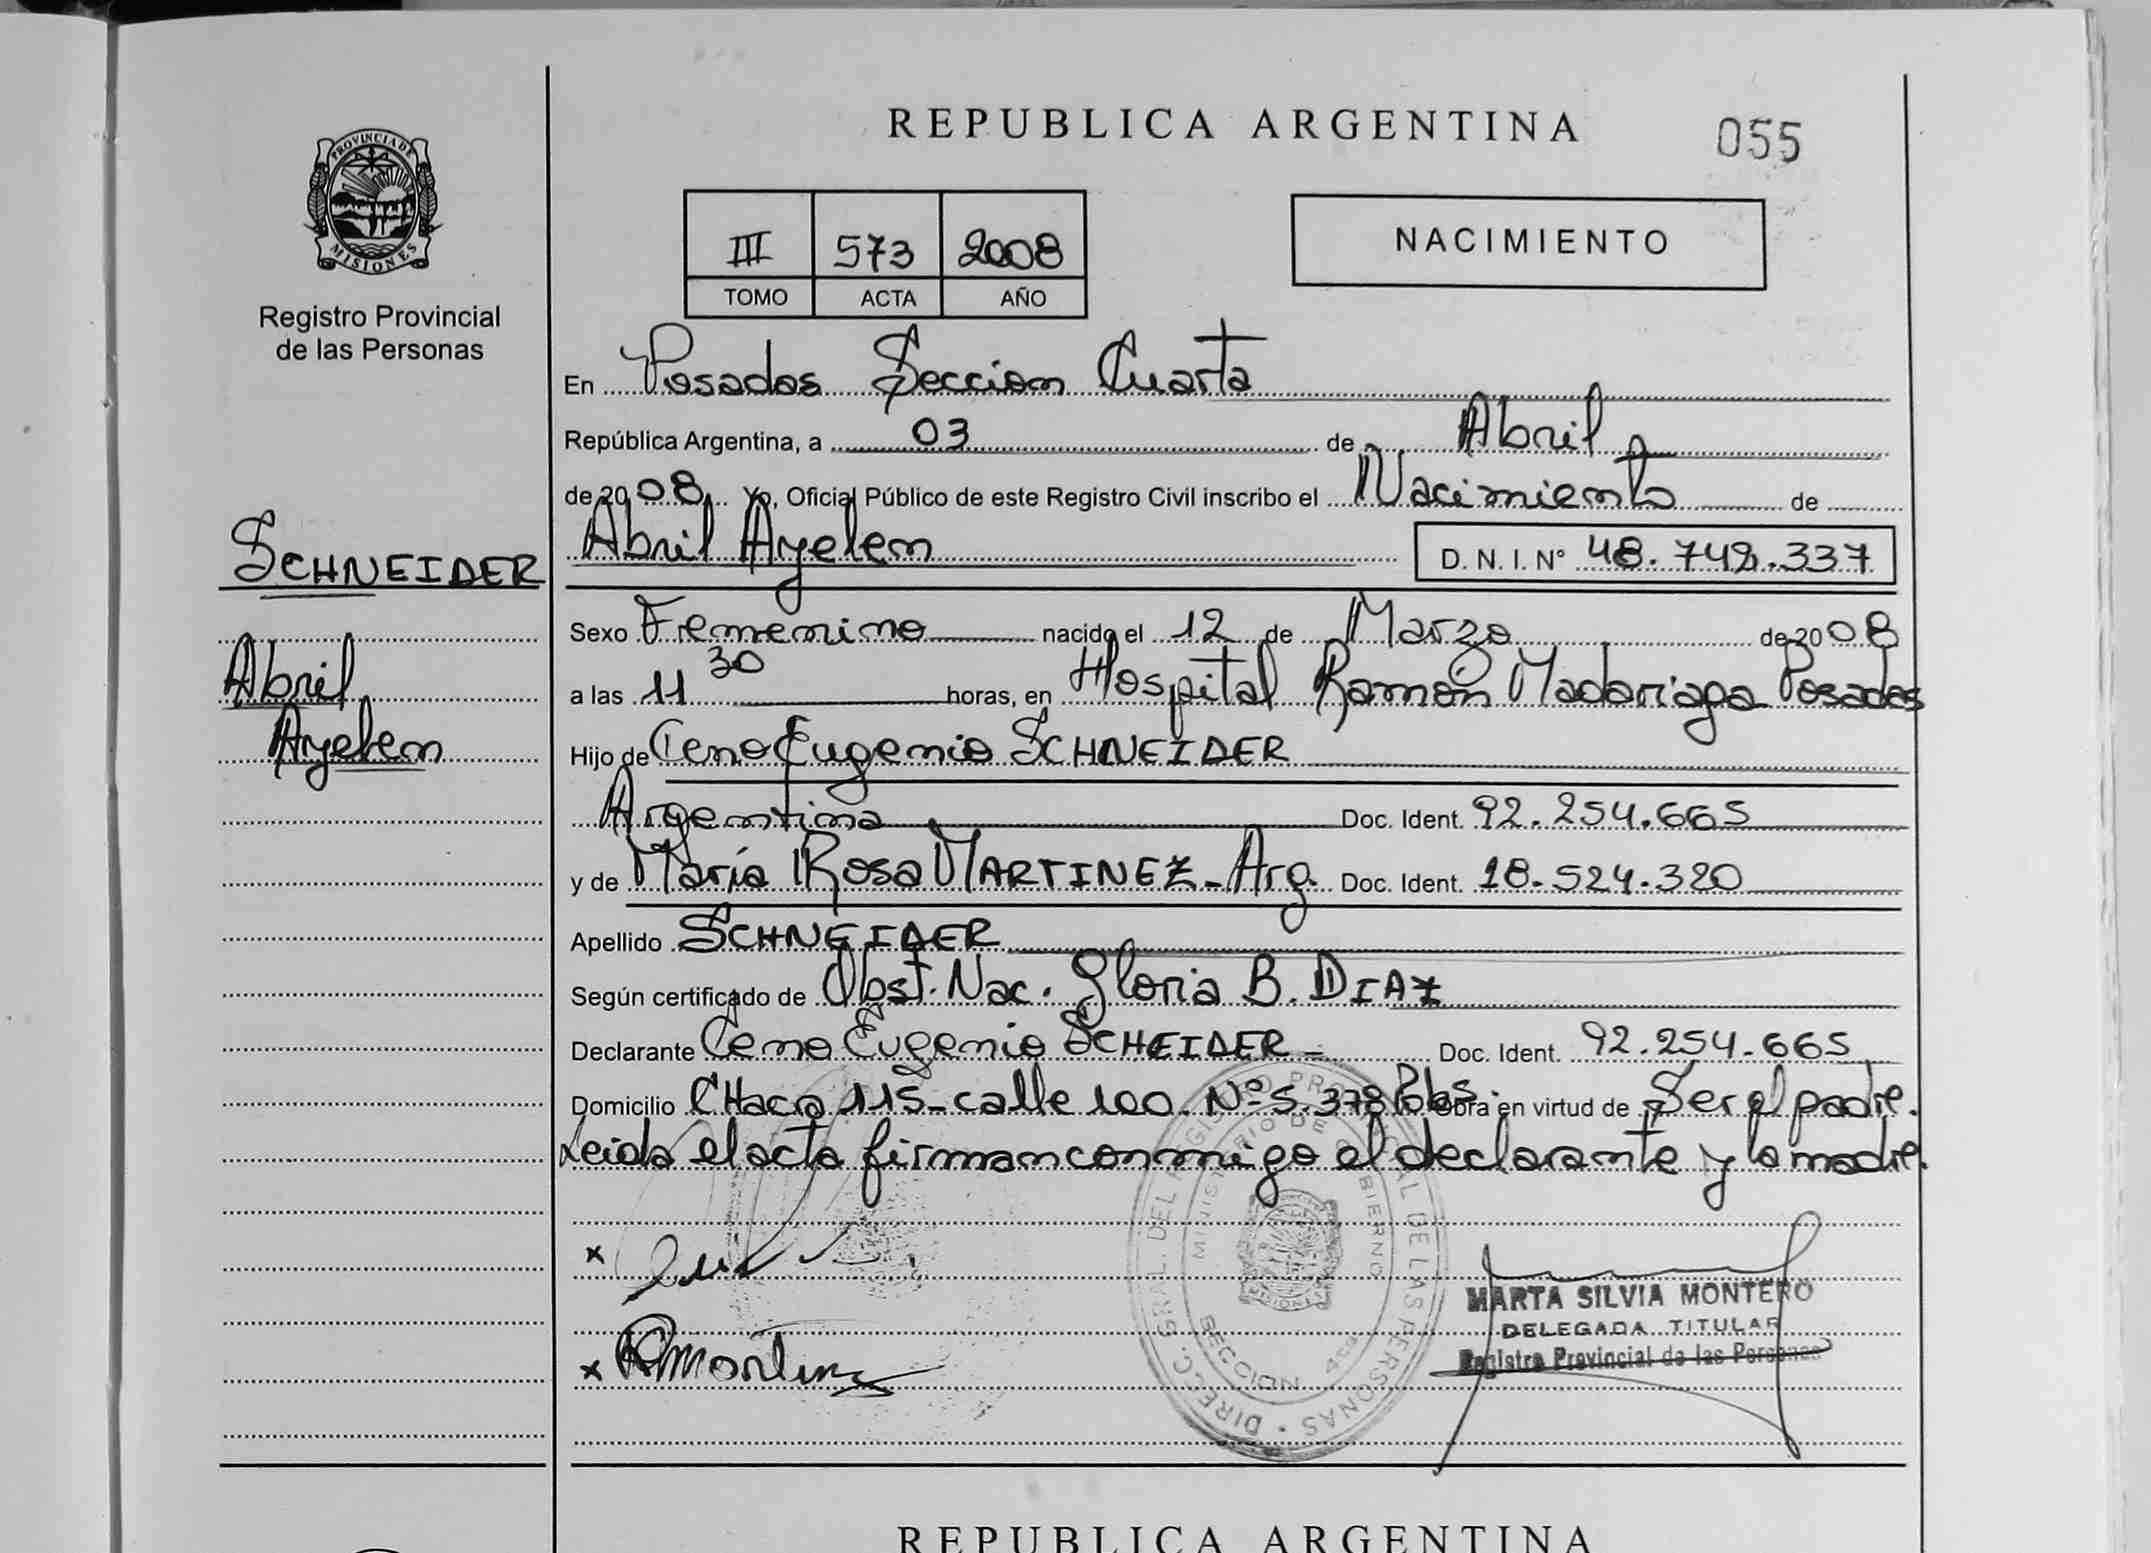 REPUBLICA ARGENTINA
055
PROVINCIA DE
MISIONES
Registro Provincial
de las Personas
III 573 2008
TOMO ACTA AÑO
NACIMIENTO
En Posadas Sección Cuarta
República Argentina, a 03 de Abril
de 2008 Yo, Oficial Público de este Registro Civil inscribo el Nacimiento de
Abril Ayelen D. N. I. N° 48.749.337
SCHNEIDER
Abril
Ayelen
Sexo Femenino nacido el 12 de Marzo de 2008
a las 11 30 horas, en Hospital Ramón Madariaga Posadas
Hijo de Ceno Eugenio SCHNEIDER
Argentina Doc. Ident. 92.254.665
y de María Rosa MARTINEZ - Arg. Doc. Ident. 18.524.320
Apellido SCHNEIDER
Según certificado de Obst. Nac. Gloria B. DIAZ
Declarante Ceno Eugenio SCHEIDER - Doc. Ident. 92.254.665
Domicilio CHacra 115 - calle 100. N° 5.378 Pdas. Obra en virtud de Ser el padre.
Leida el acta firman conmigo el declarante y la madre.
DIRECC. GRAL. DEL REGISTRO PROVINCIAL DE LAS PERSONAS
MINISTERIO DE GOBIERNO
SECCION 4ta
MISIONES
x
x RMartinez
MARTA SILVIA MONTERO
DELEGADA TITULAR
Registro Provincial de las Personas
REPUBLICA ARGENTINA